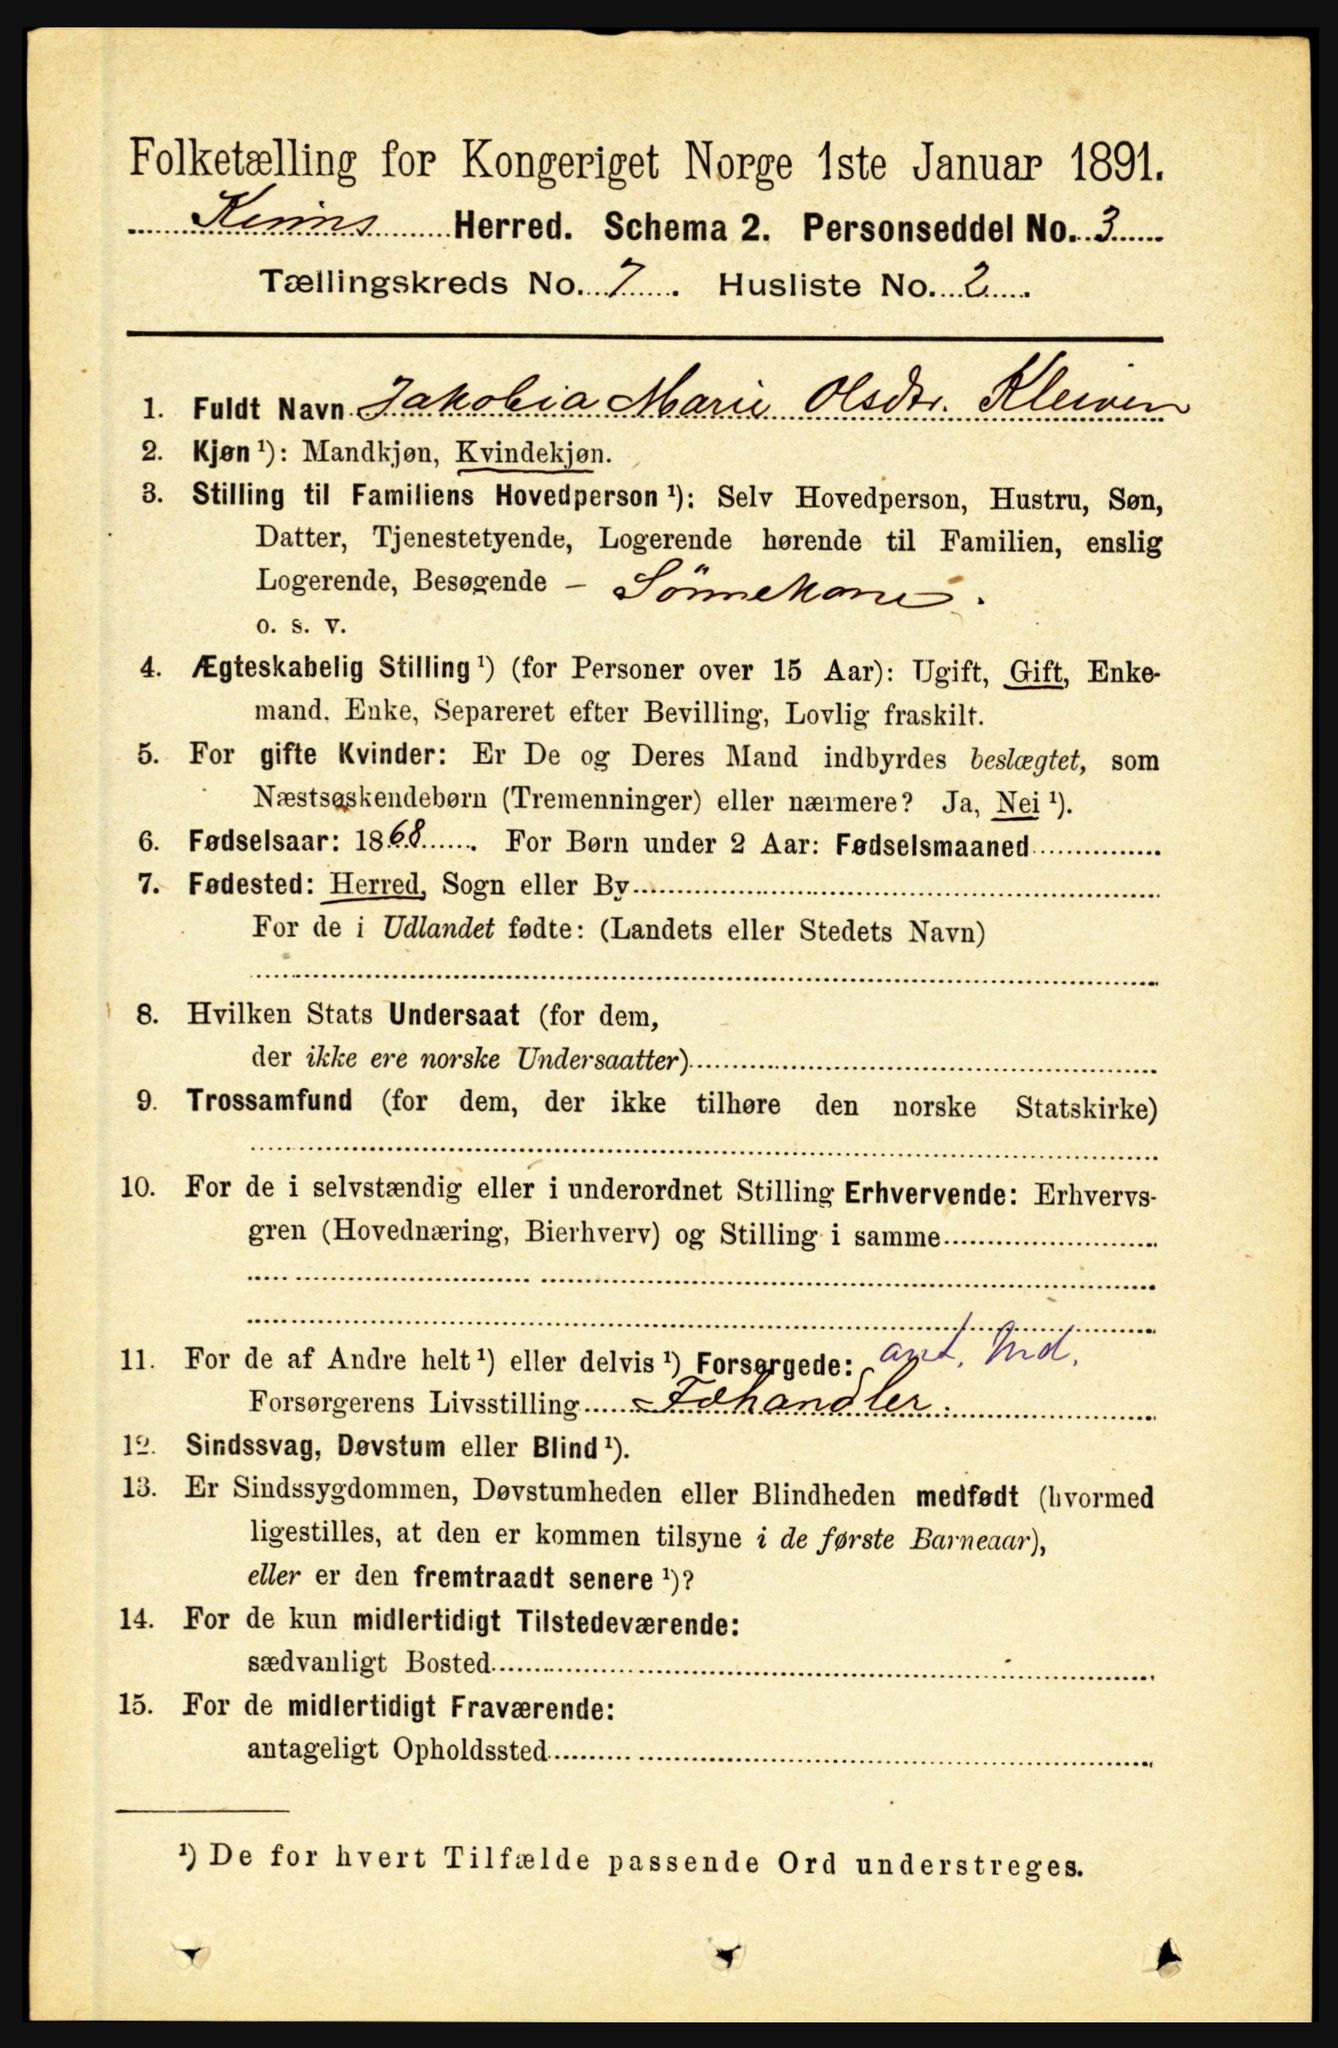 Folketælling for Kongeriget Norge 1ste Januar 1891.
Kinns Herred. Schema 2. Personseddel No. 3
Tællingskreds No. 7. Husliste No. 2.
1. Fuldt Navn Jakobia Marie Olsdtr. Kleiven
2. Kjøn ¹): Mandkjøn, Kvindekjøn.
3. Stilling til Familiens Hovedperson ¹): Selv Hovedperson, Hustru, Søn,
Datter, Tjenestetyende, Logerende hørende til Familien, enslig
Logerende, Besøgende – Sönnekone.
o. s. v.
4. Ægteskabelig Stilling ¹) (for Personer over 15 Aar): Ugift, Gift, Enke-
mand, Enke, Separeret efter Bevilling, Lovlig fraskilt.
5. For gifte Kvinder: Er De og Deres Mand indbyrdes beslægtet, som
Næstsøskendebørn (Tremenninger) eller nærmere? Ja, Nei ¹).
6. Fødselsaar: 1868. For Børn under 2 Aar: Fødselsmaaned
7. Fødested: Herred, Sogn eller By
For de i Udlandet fødte: (Landets eller Stedets Navn)
8. Hvilken Stats Undersaat (for dem,
der ikke ere norske Undersaatter)
9. Trossamfund (for dem, der ikke tilhøre den norske Statskirke)
10. For de i selvstændig eller i underordnet Stilling Erhvervende: Erhvervs-
gren (Hovednæring, Bierhverv) og Stilling i samme
11. For de af Andre helt ¹) eller delvis ¹) Forsørgede: ant. Md.
Forsørgerens Livsstilling Fæhandler.
12. Sindssvag, Døvstum eller Blind ¹).
13. Er Sindssygdommen, Døvstumheden eller Blindheden medfødt (hvormed
ligestilles, at den er kommen tilsyne i de første Barneaar),
eller er den fremtraadt senere ¹)?
14. For de kun midlertidigt Tilstedeværende:
sædvanligt Bosted
15. For de midlertidigt Fraværende:
antageligt Opholdssted
¹) De for hvert Tilfælde passende Ord understreges.